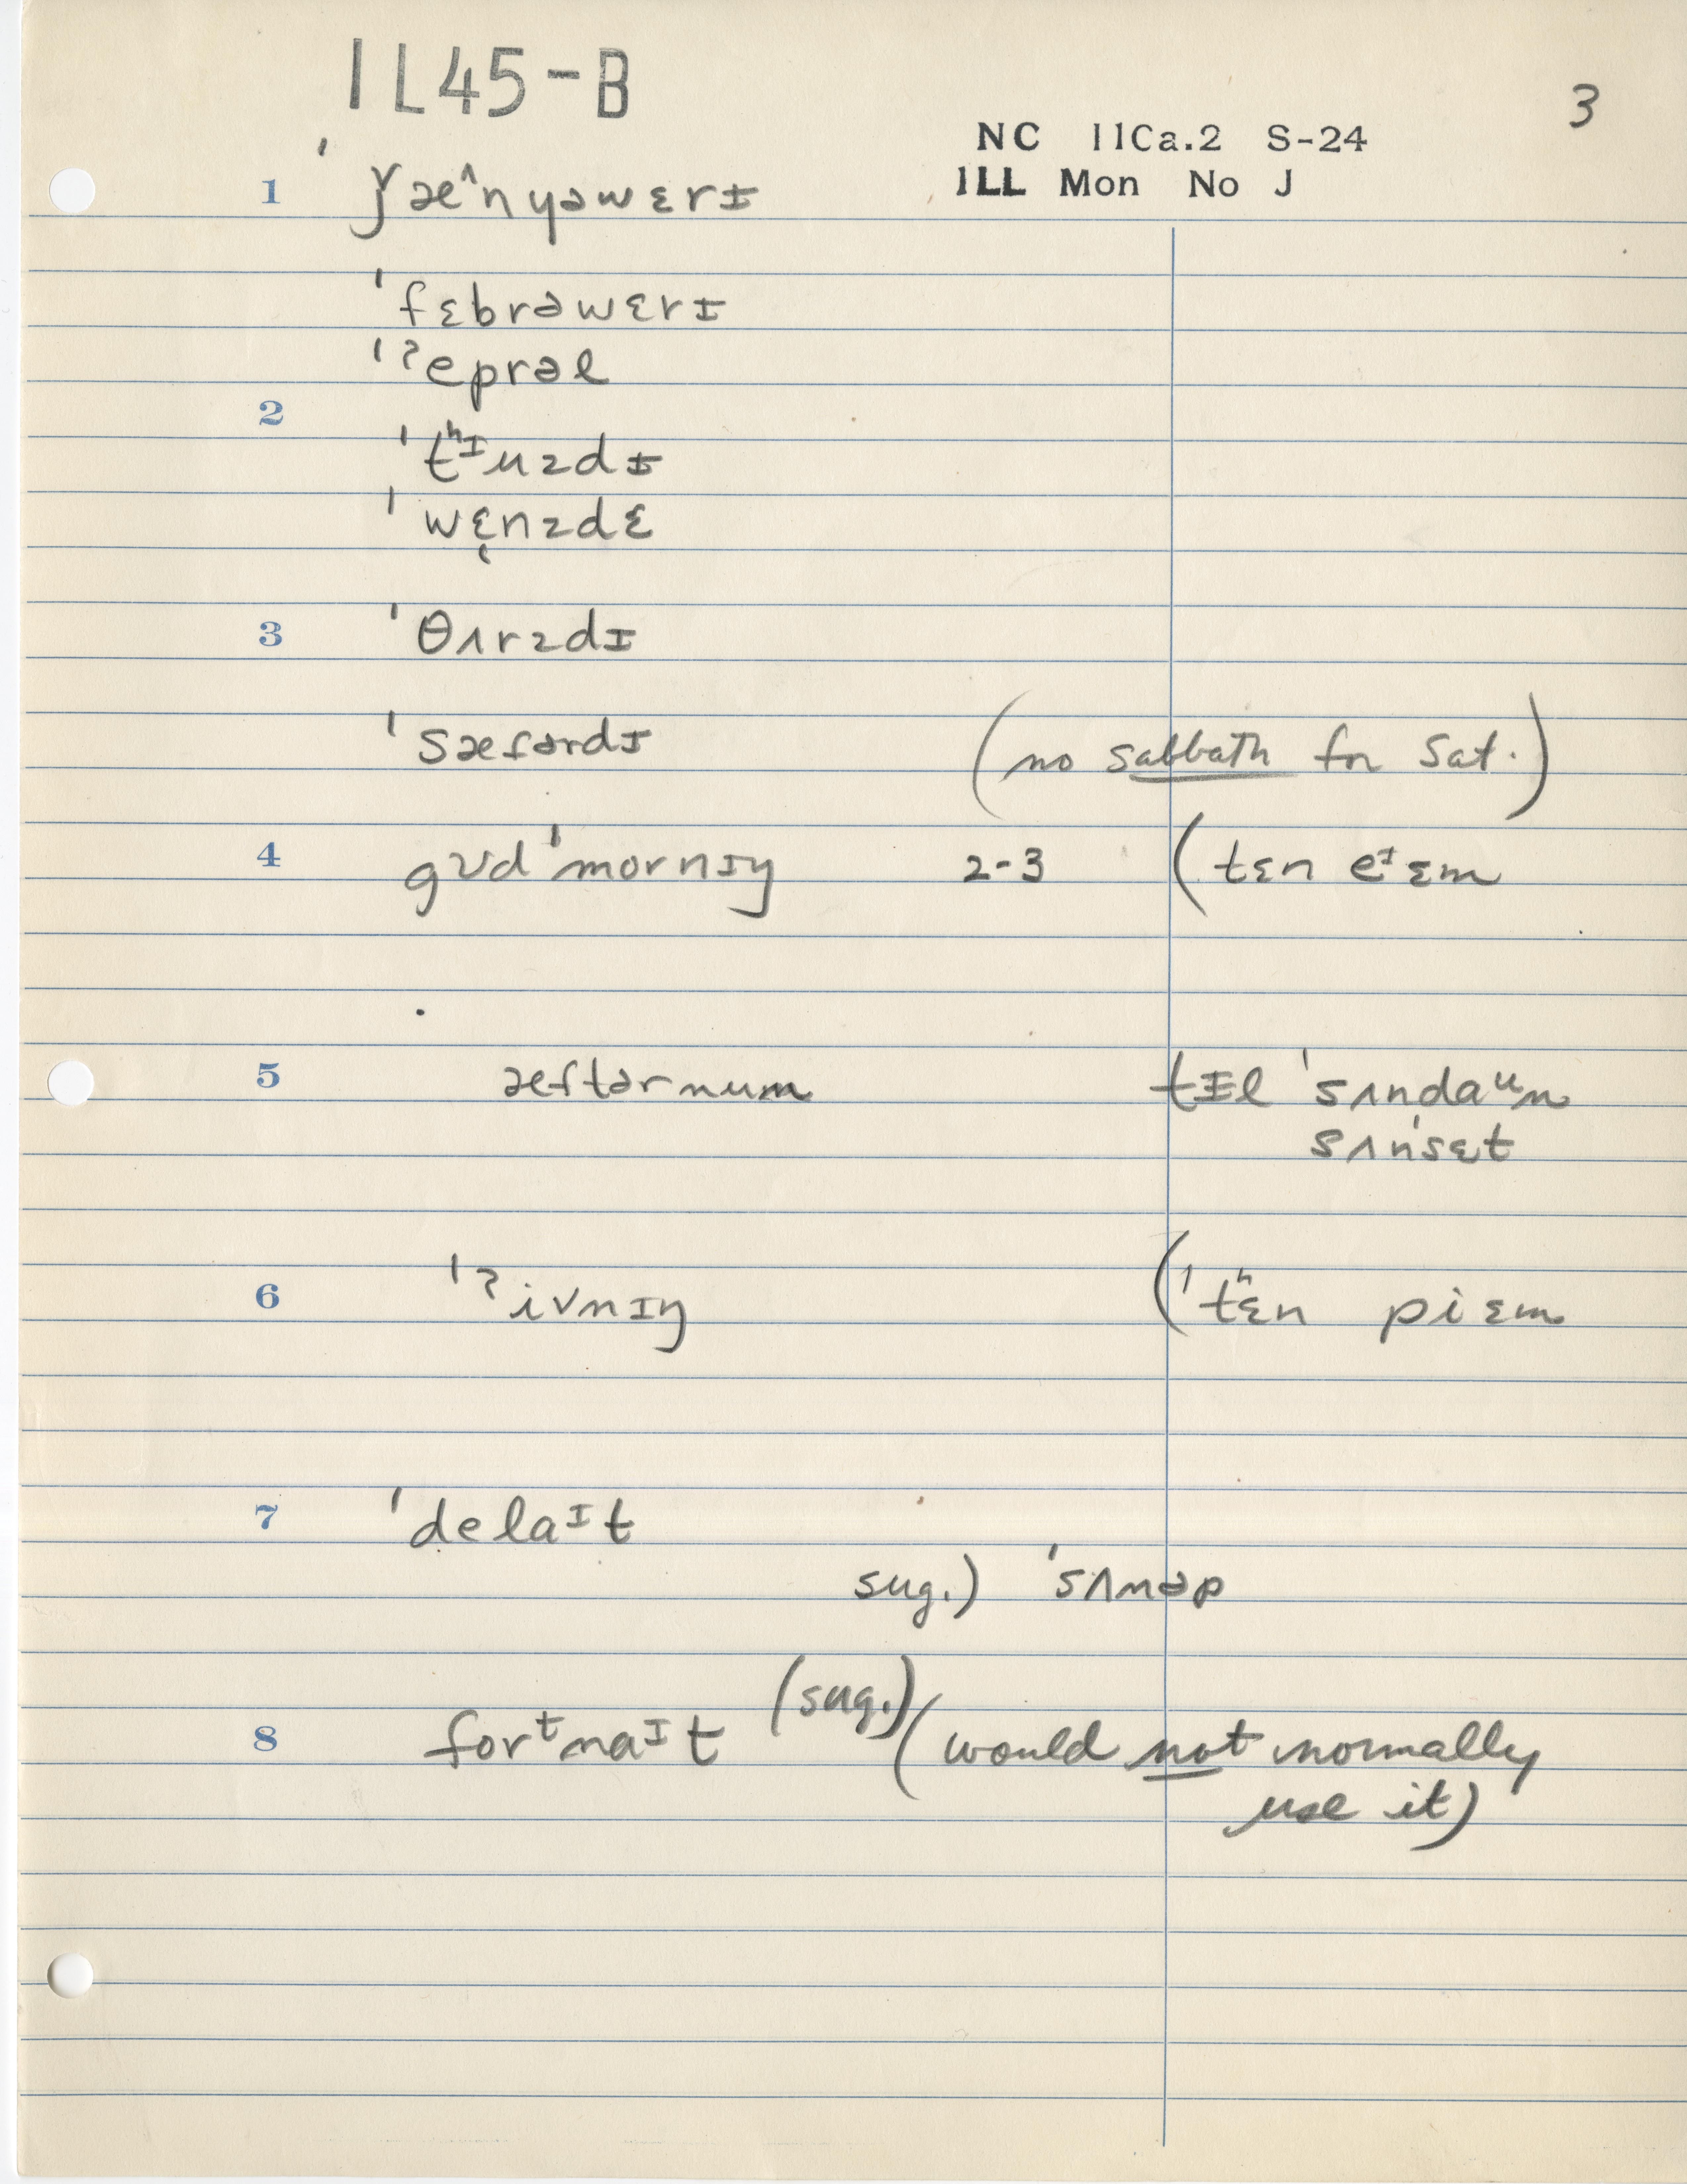 IL45-B
3
NC 11Ca.2 S-24
ILL Mon No J
1 ˈǰæ^nyəwɛrɪ
ˈfɛbrəwɛrɪ
ˈˀeprəl
2
ˈtʰᶦuzdɪ
ˈwɛ̨nzdɛ
3 ˈθʌrzdɪ
ˈsæt̬ərdɪ (no sabbath for Sat.)
4 gʊdˈmornɪŋ 2-3 (tɛn eᶦɛm
5 æftərnum tɪl ˈsʌndaᵘn
sʌnˈsɛt
6 ˈˀivnɪŋ (ˈtʰɛn pi ɛm
7 ˈdelaᶦt
sug.) ˈsʌnəp
8 forᵗnaᶦt (sug.) (would not normally
use it)